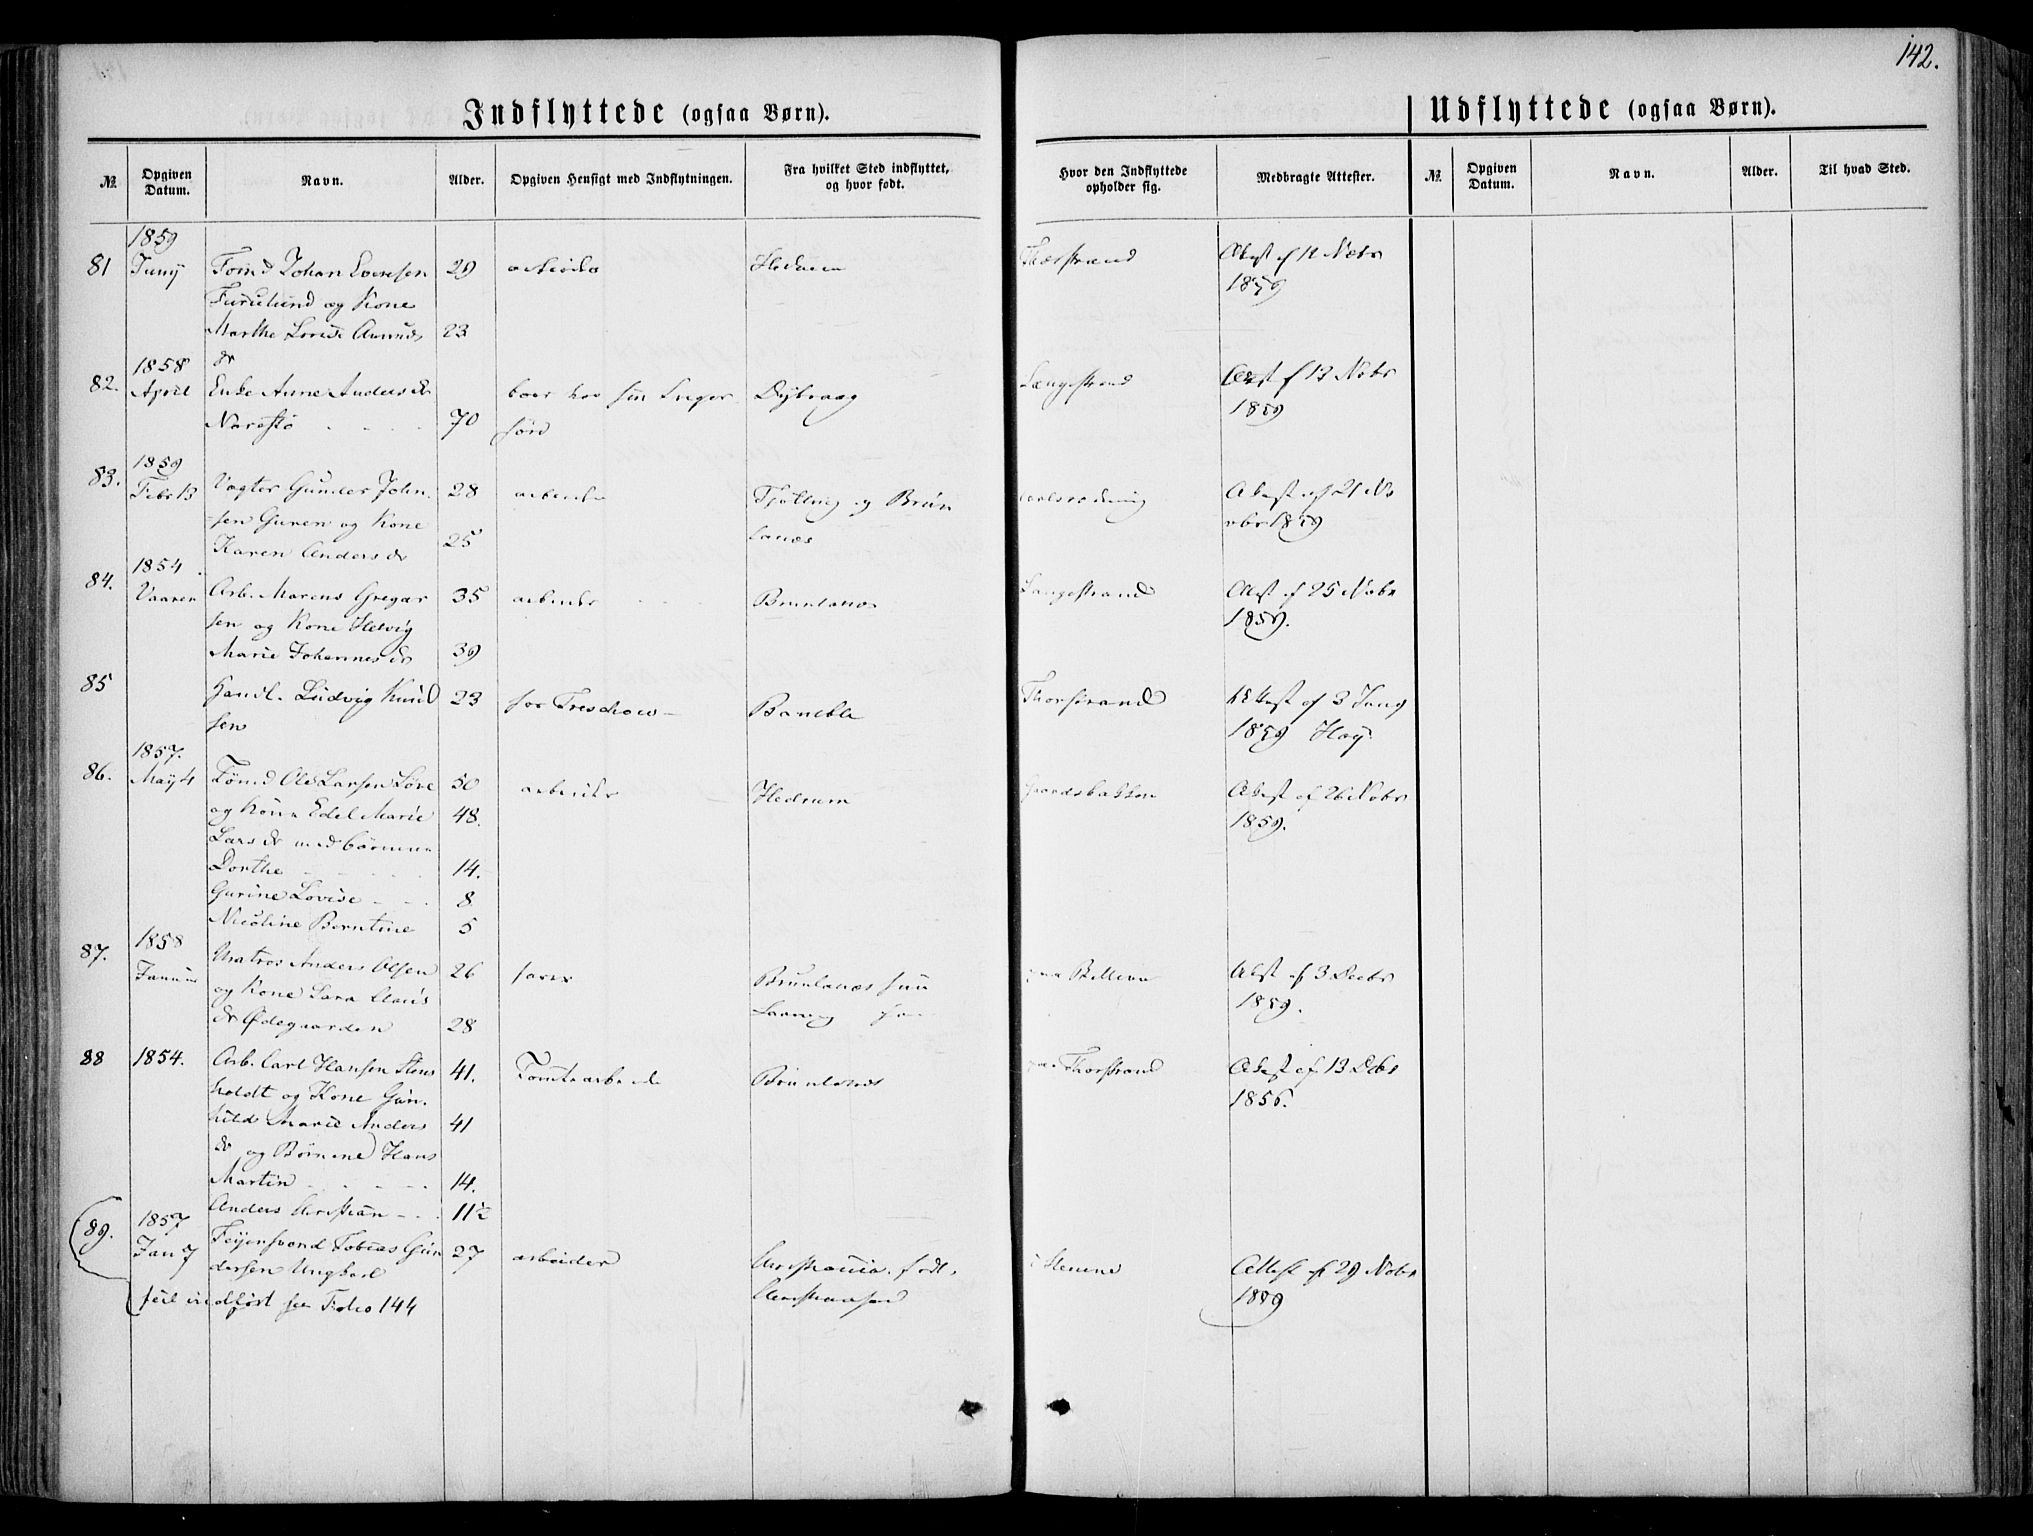 142.
Indflyttede (ogsaa Børn).
Udflyttede (ogsaa Børn).
№. Opgiven Datum. Navn. Alder. Opgiven Hensigt med Indflytningen. Fra hvilket Sted indflyttet, og hvor født. Hvor den Indflyttede opholder sig. Medbragte Attester. №. Opgiven Datum. Navn. Alder. Til hvad Sted.
1859
81 Juny Tømd Johan Evensen 29 Hedrum Attest af 12 Novbr
Furulund og Kone 1859
Marthe Lovise Amunds 23
dr
1858
82. April Enke Anne Anders dr boer hos sin Sviger Dybvaag Langestrand Attest af 13 Novbr
Narestø 70 søn 1859
1859
83. Febr 13 Vogter Gunder John 28 arbeide Tjølling og Brun Attest af 21 No
sen Guren og Kone lanæs vbr 1859
Karen Anders dr 25
1854
84. Vaaren Arb. Marcus Gregar 35 arbeide Brunlanæs Langestrand Attest af 25 Novbr
sen og Kone Helvig 1859.
Marie Johannes dr 39
85 Handl. Ludvig Knud 23 hos Treschow Bamble Thorstrand Attest af 3 Juny
sen 1859
1857.
86. May 4 Tømd Ole Larsen 50 arbeide Hedrum Attest af 26 Novbr
og Kone Edel Marie 48. 1859.
Lars dr med børnene
Dorthe 14.
Gurine Lovise 8
Nicoline Berntine 5
1858
87. Januar Matros Anders Olsen 26 farer Brunlanæs Attest af 3 Decbr
og Kone Sara Claus Laurvig 1859.
dr Ødegaarden 28
88 1854. Arb. Carl Hansen Stens 41. Tomtearbeide Brunlanæs Thorstrand Attest af 13 Decbr
holdt og Kone Gun. 1856.
hild Marie Anders 41
dr og Børnene Hans
Martin 14.
Anders Christian 11½
89. 1857
Jan 7 Feyersvend Tobias Gun 27 arbeider Christiania. født i Attest af 29 Novbr
dersen Ungkarl Christiansand 1859
feil indført see Folio 144